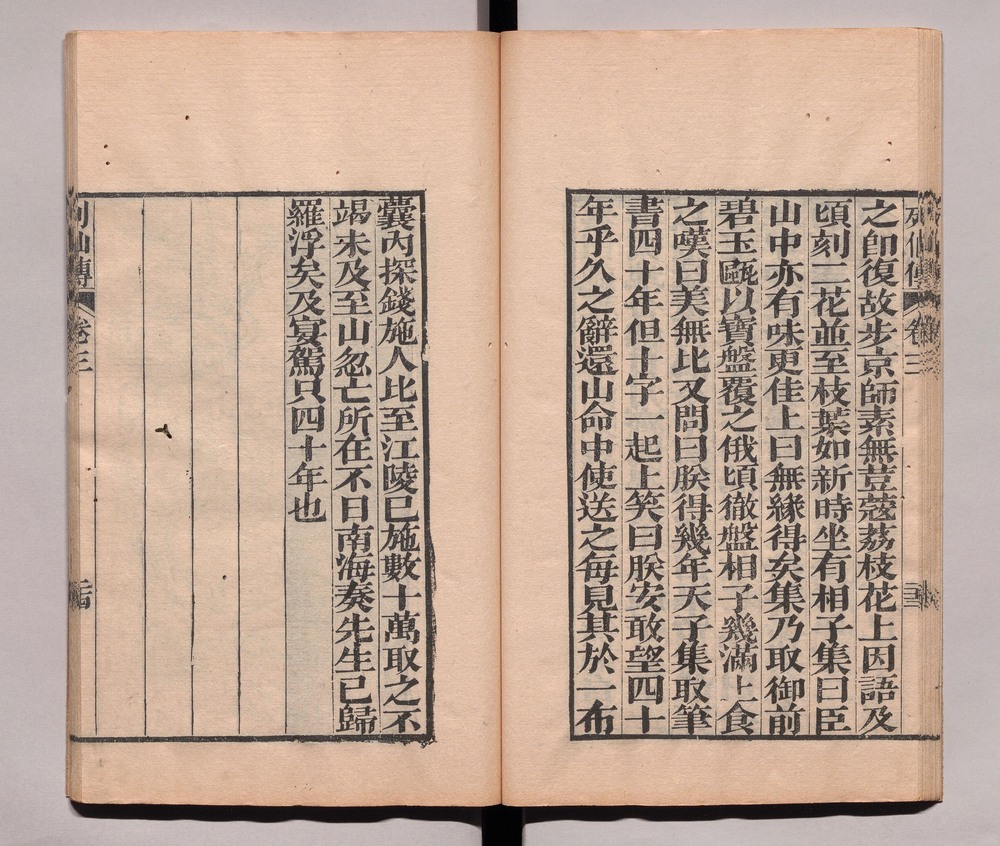 列仙傳 卷三
之卽復故步京師素無荳蔻荔枝花上因語及
頃刻二花並至枝葉如新時坐有相子集曰臣
山中亦有味更佳上曰無緣得矣集乃取御前
碧玉甌以寶盤覆之俄頃徹盤相子幾滿上食
之嘆曰美無比又問曰朕得幾年天子集取筆
書四十年但十字一起上笑曰朕安敢望四十
年乎久之辭還山命中使送之每見其於一布
囊內探錢施人比至江陵已施數十萬取之不
竭未及至山忽亡所在不日南海奏先生已歸
羅浮矣及宴駕只四十年也
列仙傳 卷三